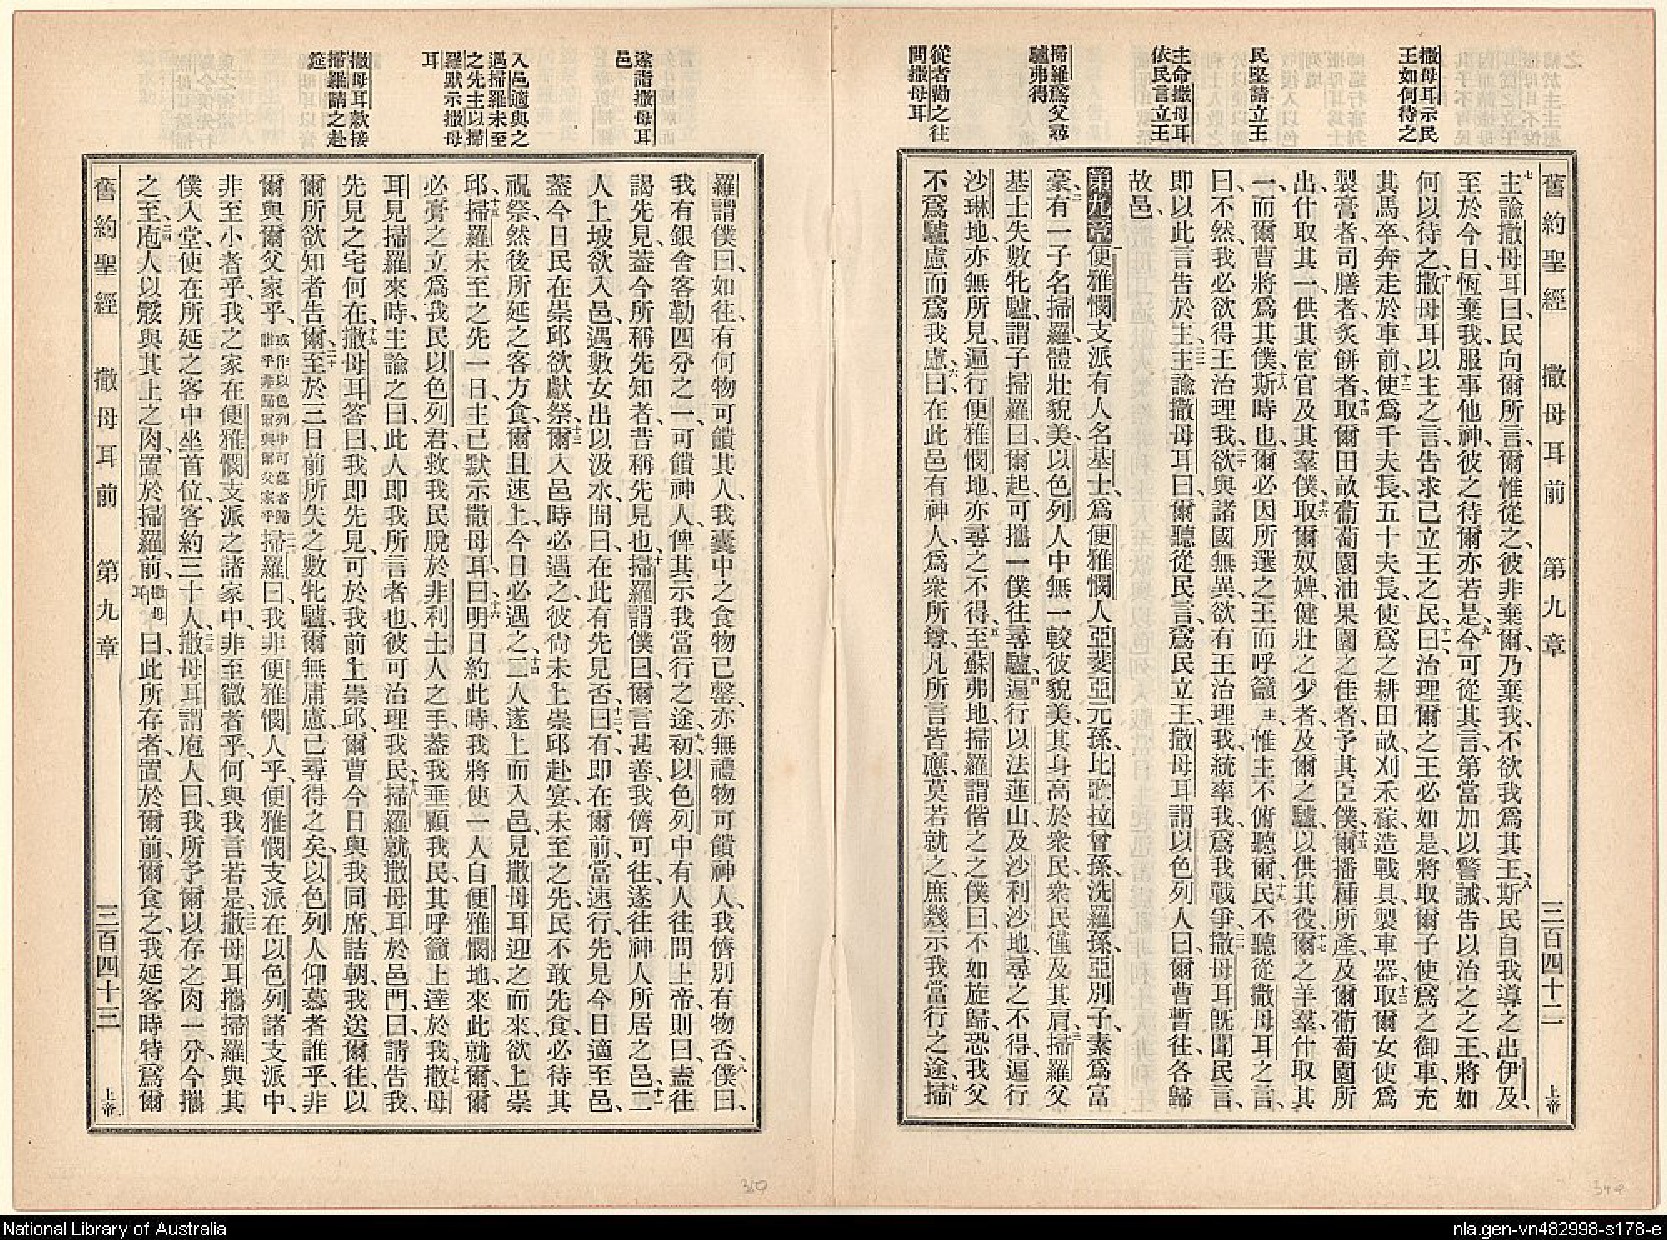 舊約聖經 撒母耳前 第九章 三百四十二 上帝
撒母耳示民
王如何待之
民堅請立王
主命撒母耳
依民言立王
掃羅為父尋
驢弗得
從者勸之往
問撒母耳
主諭撒母耳曰、民向爾所言、爾惟從之、彼非棄爾、乃棄我、不欲我為其王、八斯民自我導之出伊及、
至於今日、恆棄我、服事他神、彼之待爾、亦若是、九今可從其言、第當加以警誡、告以治之之王、將如
何以待之、十撒母耳以主之言、告求己立王之民、十一曰、治理爾之王必如是、將取爾子、使為之御車、充
其馬卒、奔走於車前、十二使為千夫長、五十夫長、使為之耕田畝、刈禾稼、造戰具、製車器、十三取爾女使為
製膏者、司膳者、炙餅者、十四取爾田畝、葡萄園、油果園之佳者、予其臣僕、十五爾播種所產、及爾葡萄園所
出、什取其一、供其宦官、及其羣僕、十六取爾奴婢、健壯之少者、及爾之驢、以供其役、十七爾之羊羣、什取其
一、而爾曹將為其僕、十八斯時也、爾必因所選之王而呼籲主、惟主不俯聽爾、十九民不聽從撒母耳之言、
曰、不然、我必欲得王治理我、二十欲與諸國無異、欲有王治理我、統率我、為我戰爭、二一撒母耳既聞民言、
即以此言告於主、二二主諭撒母耳曰、爾聽從民言、為民立王、撒母耳謂以色列人曰、爾曹暫往、各歸
故邑、
第九章便雅憫支派有人名基士、為便雅憫人亞斐亞元孫、比歌拉曾孫、洗羅孫、亞別子、素為富
豪、二有一子名掃羅、體壯貌美、以色列人中、無一較彼貌美、其身高於衆民、衆民僅及其肩、三掃羅父
基士失數牝驢、謂子掃羅曰、爾起、可攜一僕往尋驢、四遍行以法蓮山、及沙利沙地、尋之不得、遍行
沙琳地、亦無所見、遍行便雅憫地、亦尋之不得、五至蘇弗地、掃羅謂偕之之僕曰、不如旋歸、恐我父
不為驢慮、而為我慮、六曰、在此邑有神人、為衆所尊、凡所言皆應、莫若就之、庶幾示我當行之途、七掃
途詣撒母耳
邑
入邑適與之
遇掃羅未至
之先主以掃
羅默示撒母
耳
撒母耳款接
掃羅請之赴
筵
羅謂僕曰、如往、有何物可饋其人、我囊中之食物已罄、亦無禮物可饋神人、我儕別有物否、八僕曰、
我有銀舍客勒四分之一、可饋神人、俾其示我當行之途、九初以色列中有人往問上帝、則曰、盍往
謁先見、蓋今所稱先知者、昔稱先見也、十掃羅謂僕曰、爾言甚善、我儕可往、遂往神人所居之邑、十一二
人上坡、欲入邑、遇數女出以汲水、問曰、在此有先見否、十二曰、有、即在爾前、當速行、先見今日適至邑、
蓋今日民在崇邱欲獻祭、十三爾入邑時必遇之、彼尚未上崇邱赴宴、未至之先、民不敢先食、必待其
祝祭、然後所延之客方食、爾且速上、今日必遇之、十四二人遂上而入邑、見撒母耳迎之而來、欲上崇
邱、十五掃羅未至之先一日、主已默示撒母耳曰、十六明日約此時、我將使一人自便雅憫地來此就爾、爾
必膏之、立為我民以色列君、救我民脫於非利士人之手、蓋我垂顧我民、其呼籲上達於我、十七撒母
耳見掃羅來時、主諭之曰、此人即我所言者也、彼可治理我民、十八掃羅就撒母耳於邑門曰、請告我、
先見之宅何在、十九撒母耳答曰、我即先見、可於我前上崇邱、爾曹今日與我同席、詰朝我送爾往、以
爾所欲知者告爾、二十至於三日前所失之數牝驢、爾無庸慮、已尋得之矣、以色列人仰慕者誰乎、非
爾與爾父家乎、或作以色列中可慕者歸誰乎非歸爾與爾父家乎二一掃羅曰、我非便雅憫人乎、便雅憫支派、在以色列諸支派中、
非至小者乎、我之家在便雅憫支派之諸家中、非至微者乎、何與我言若是、二二撒母耳攜掃羅與其
僕入堂、使在所延之客中坐首位、客約三十人、二三撒母耳謂庖人曰、我所予爾以存之肉一分、今攜
之至、二四庖人以骽與其上之肉、置於掃羅前、撒母耳曰、此所存者、置於爾前、爾食之、我延客時、特為爾
舊約聖經 撒母耳前 第九章 三百四十三 上帝
350
349
National Library of Australia
nla.gen-vn482998-s178-e